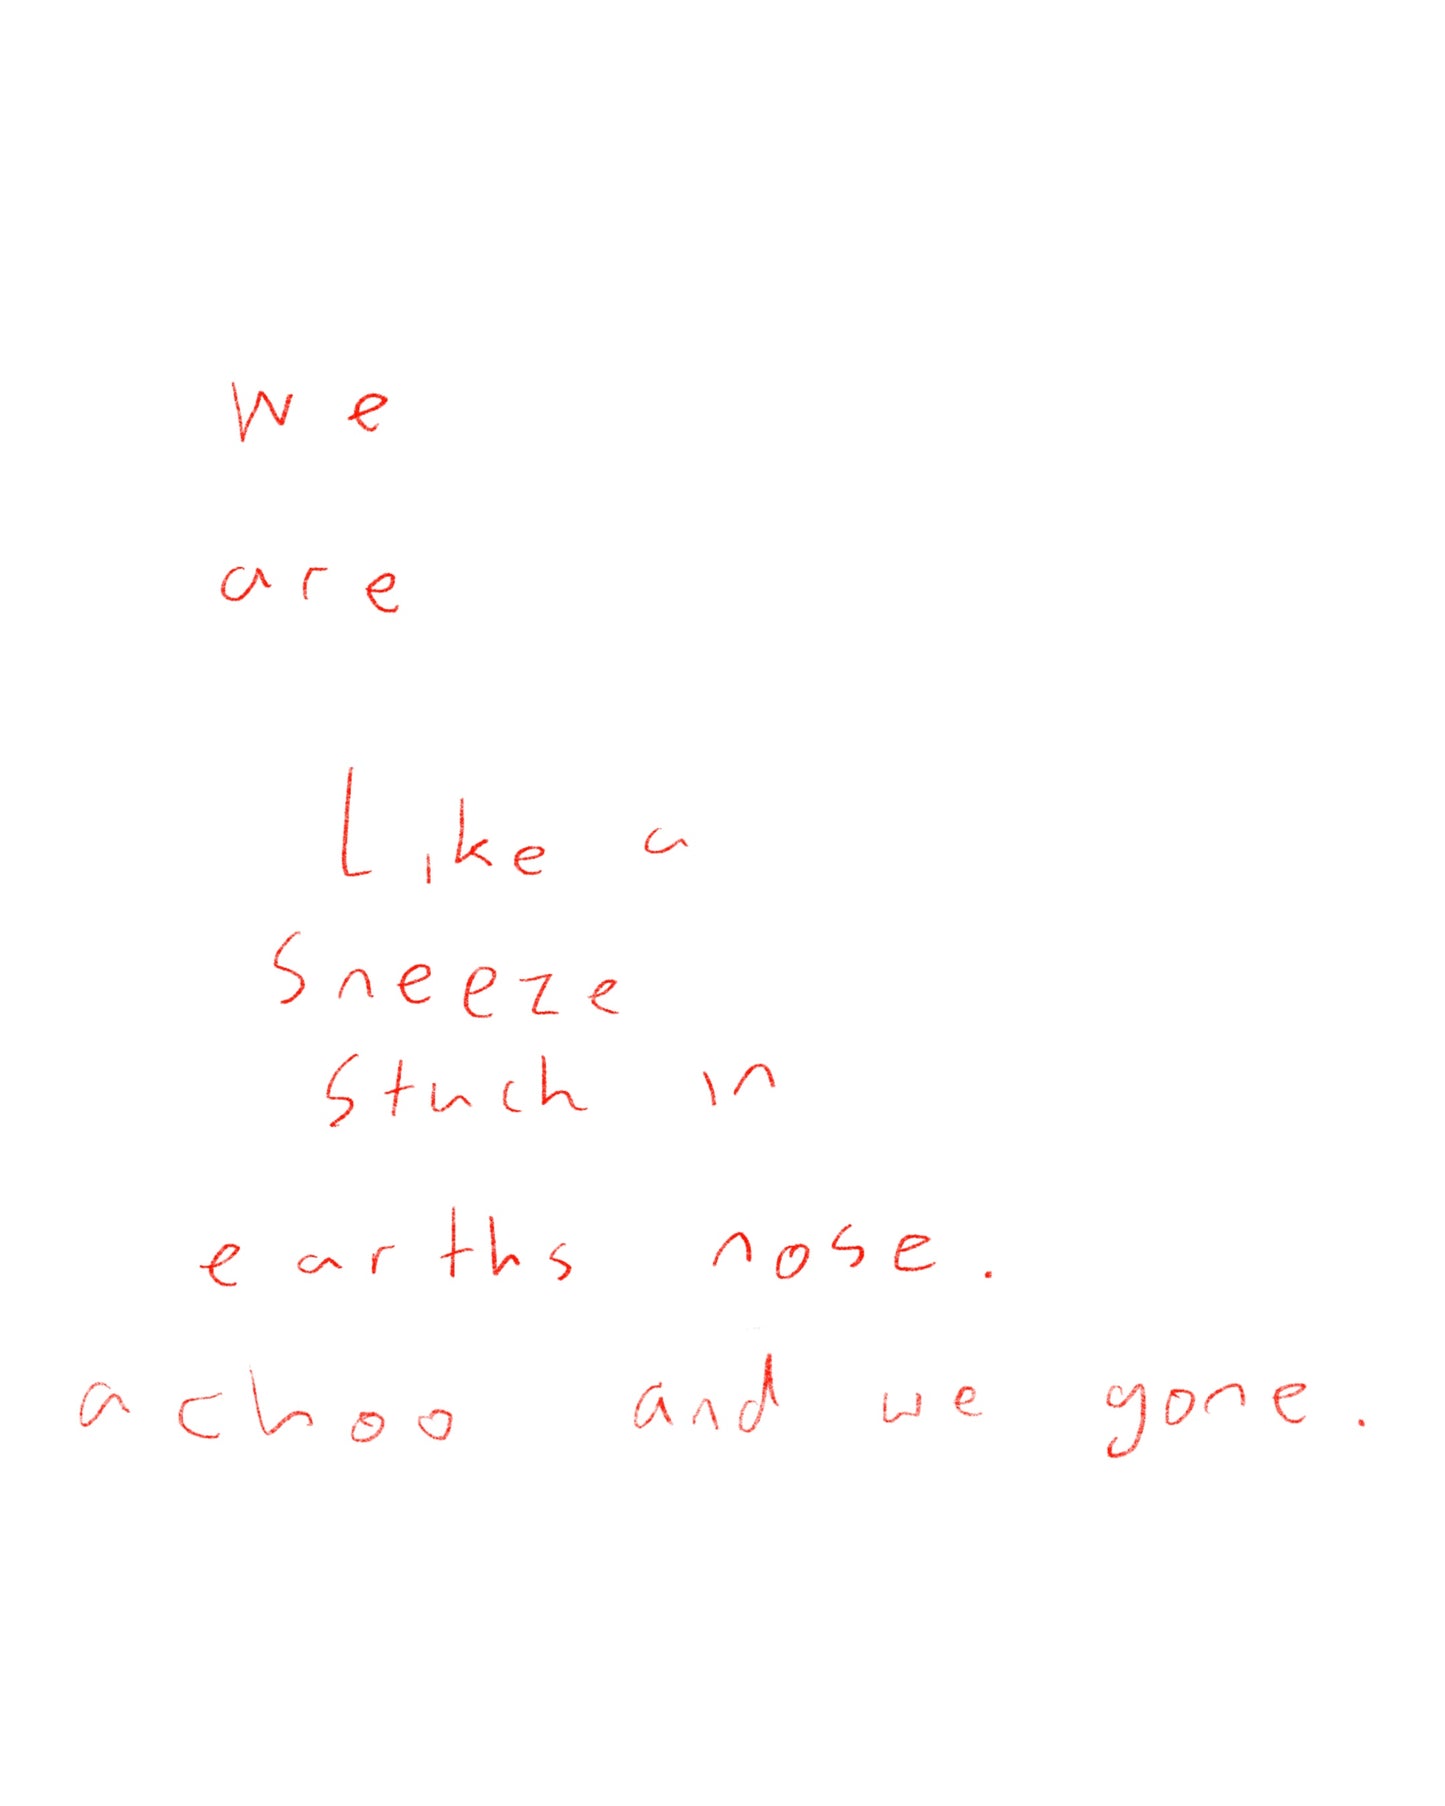 we
are
Like a
Sneeze
Stuck in
earths nose.
achoo and we gone.